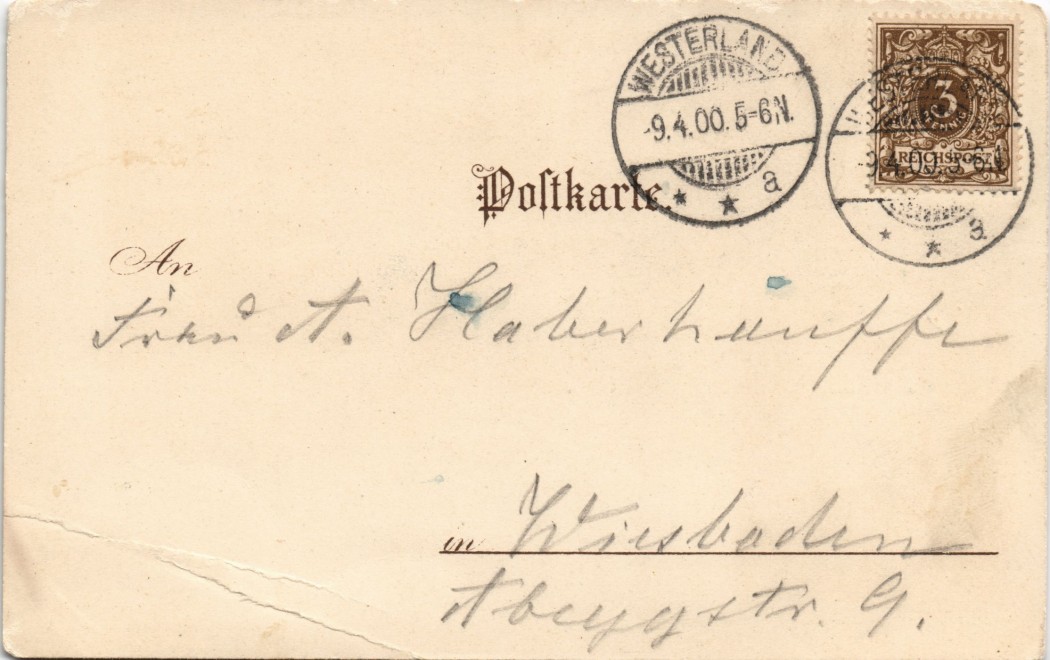 WESTERLAND
-9.4.00.5-6N.
a
3
REICHSPOST
Postkarte.
An
Frau A. Haberhauffe
in Wiesbaden
Abeggstr. 9.